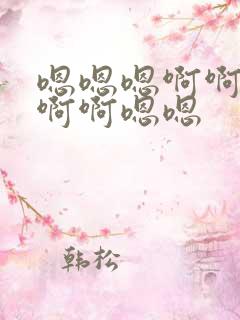 嗯嗯嗯啊啊
啊啊嗯嗯
韩松